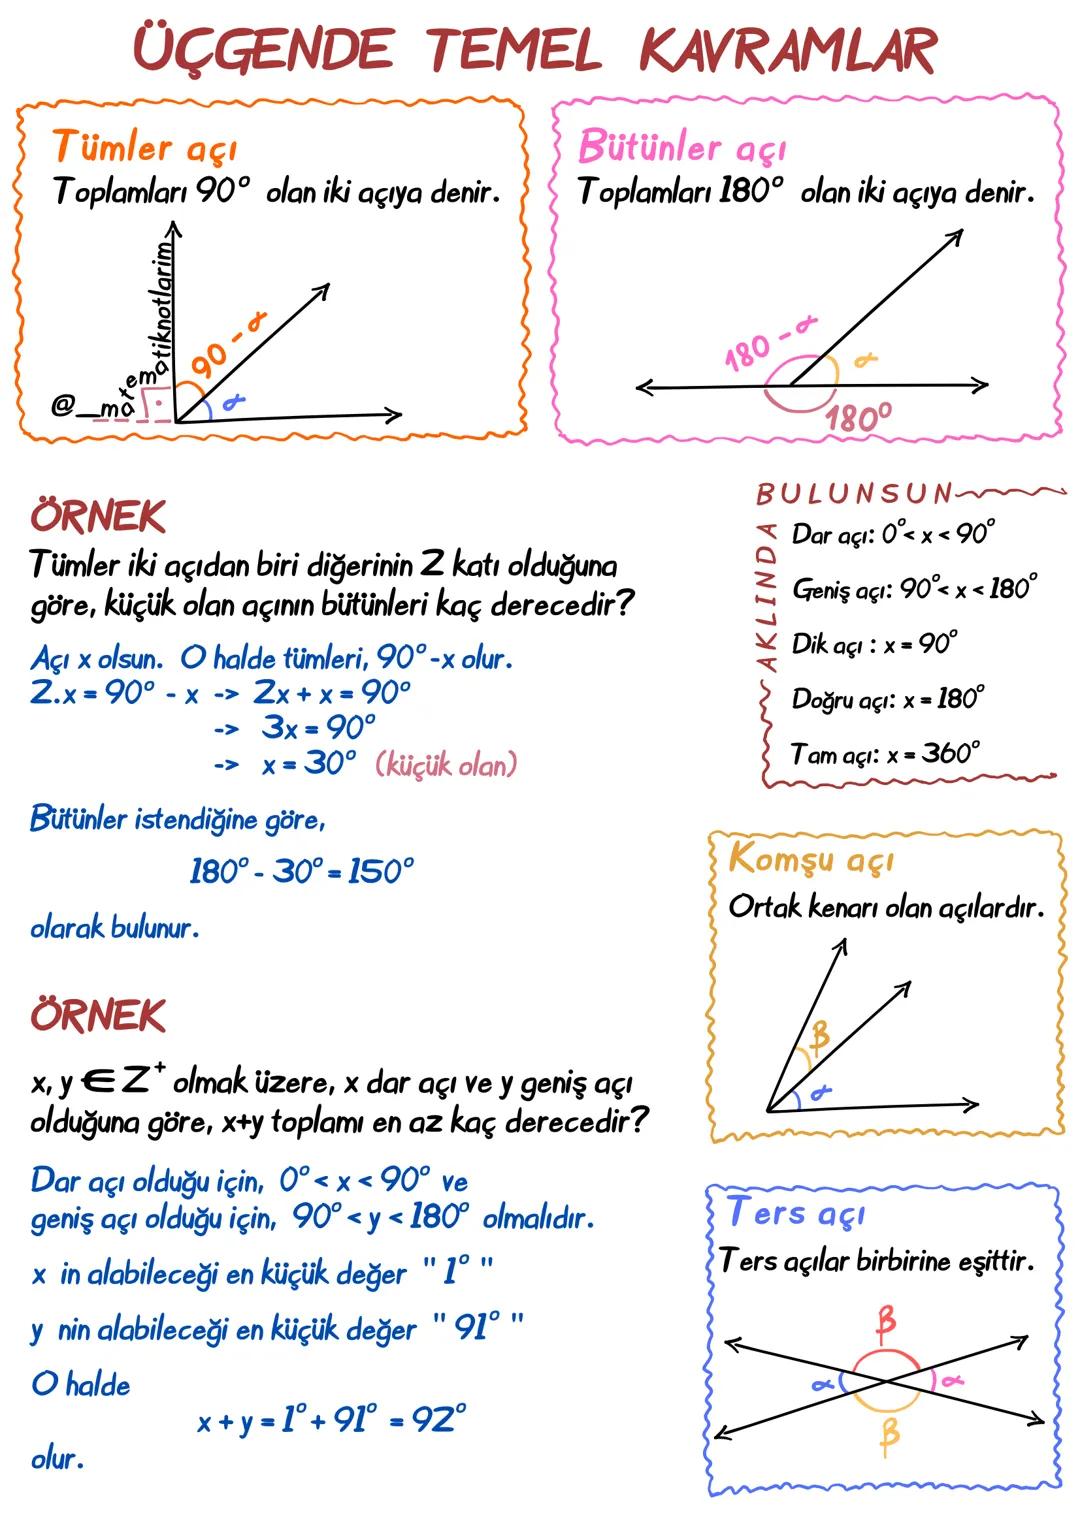 ÜÇGENDE TEMEL KAVRAMLAR
Tümler açı
Toplamları 90° olan iki açıya denir.
90 - α
α
@__matematiknotlarim
Bütünler açı
Toplamları 180° olan iki açıya denir.
180 - α
α
180°
ÖRNEK
Tümler iki açıdan biri diğerinin 2 katı olduğuna
göre, küçük olan açının bütünleri kaç derecedir?
Açı x olsun. O halde tümleri, 90° -x olur.
2.x = 90° - x -> 2x + x = 90°
-> 3x = 90°
-> x = 30° (küçük olan)
Bütünler istendiğine göre,
180° - 30° = 150°
olarak bulunur.
AKLINDA BULUNSUN
Dar açı: 0° < x < 90°
Geniş açı: 90° < x < 180°
Dik açı : x = 90°
Doğru açı: x = 180°
Tam açı: x = 360°
Komşu açı
Ortak kenarı olan açılardır.
β
α
ÖRNEK
x, y ∈ Z⁺ olmak üzere, x dar açı ve y geniş açı
olduğuna göre, x+y toplamı en az kaç derecedir?
Dar açı olduğu için, 0° < x < 90° ve
geniş açı olduğu için, 90° < y < 180° olmalıdır.
x in alabileceği en küçük değer " 1° "
y nin alabileceği en küçük değer " 91° "
O halde
x + y = 1° + 91° = 92°
olur.
Ters açı
Ters açılar birbirine eşittir.
β
α α
β